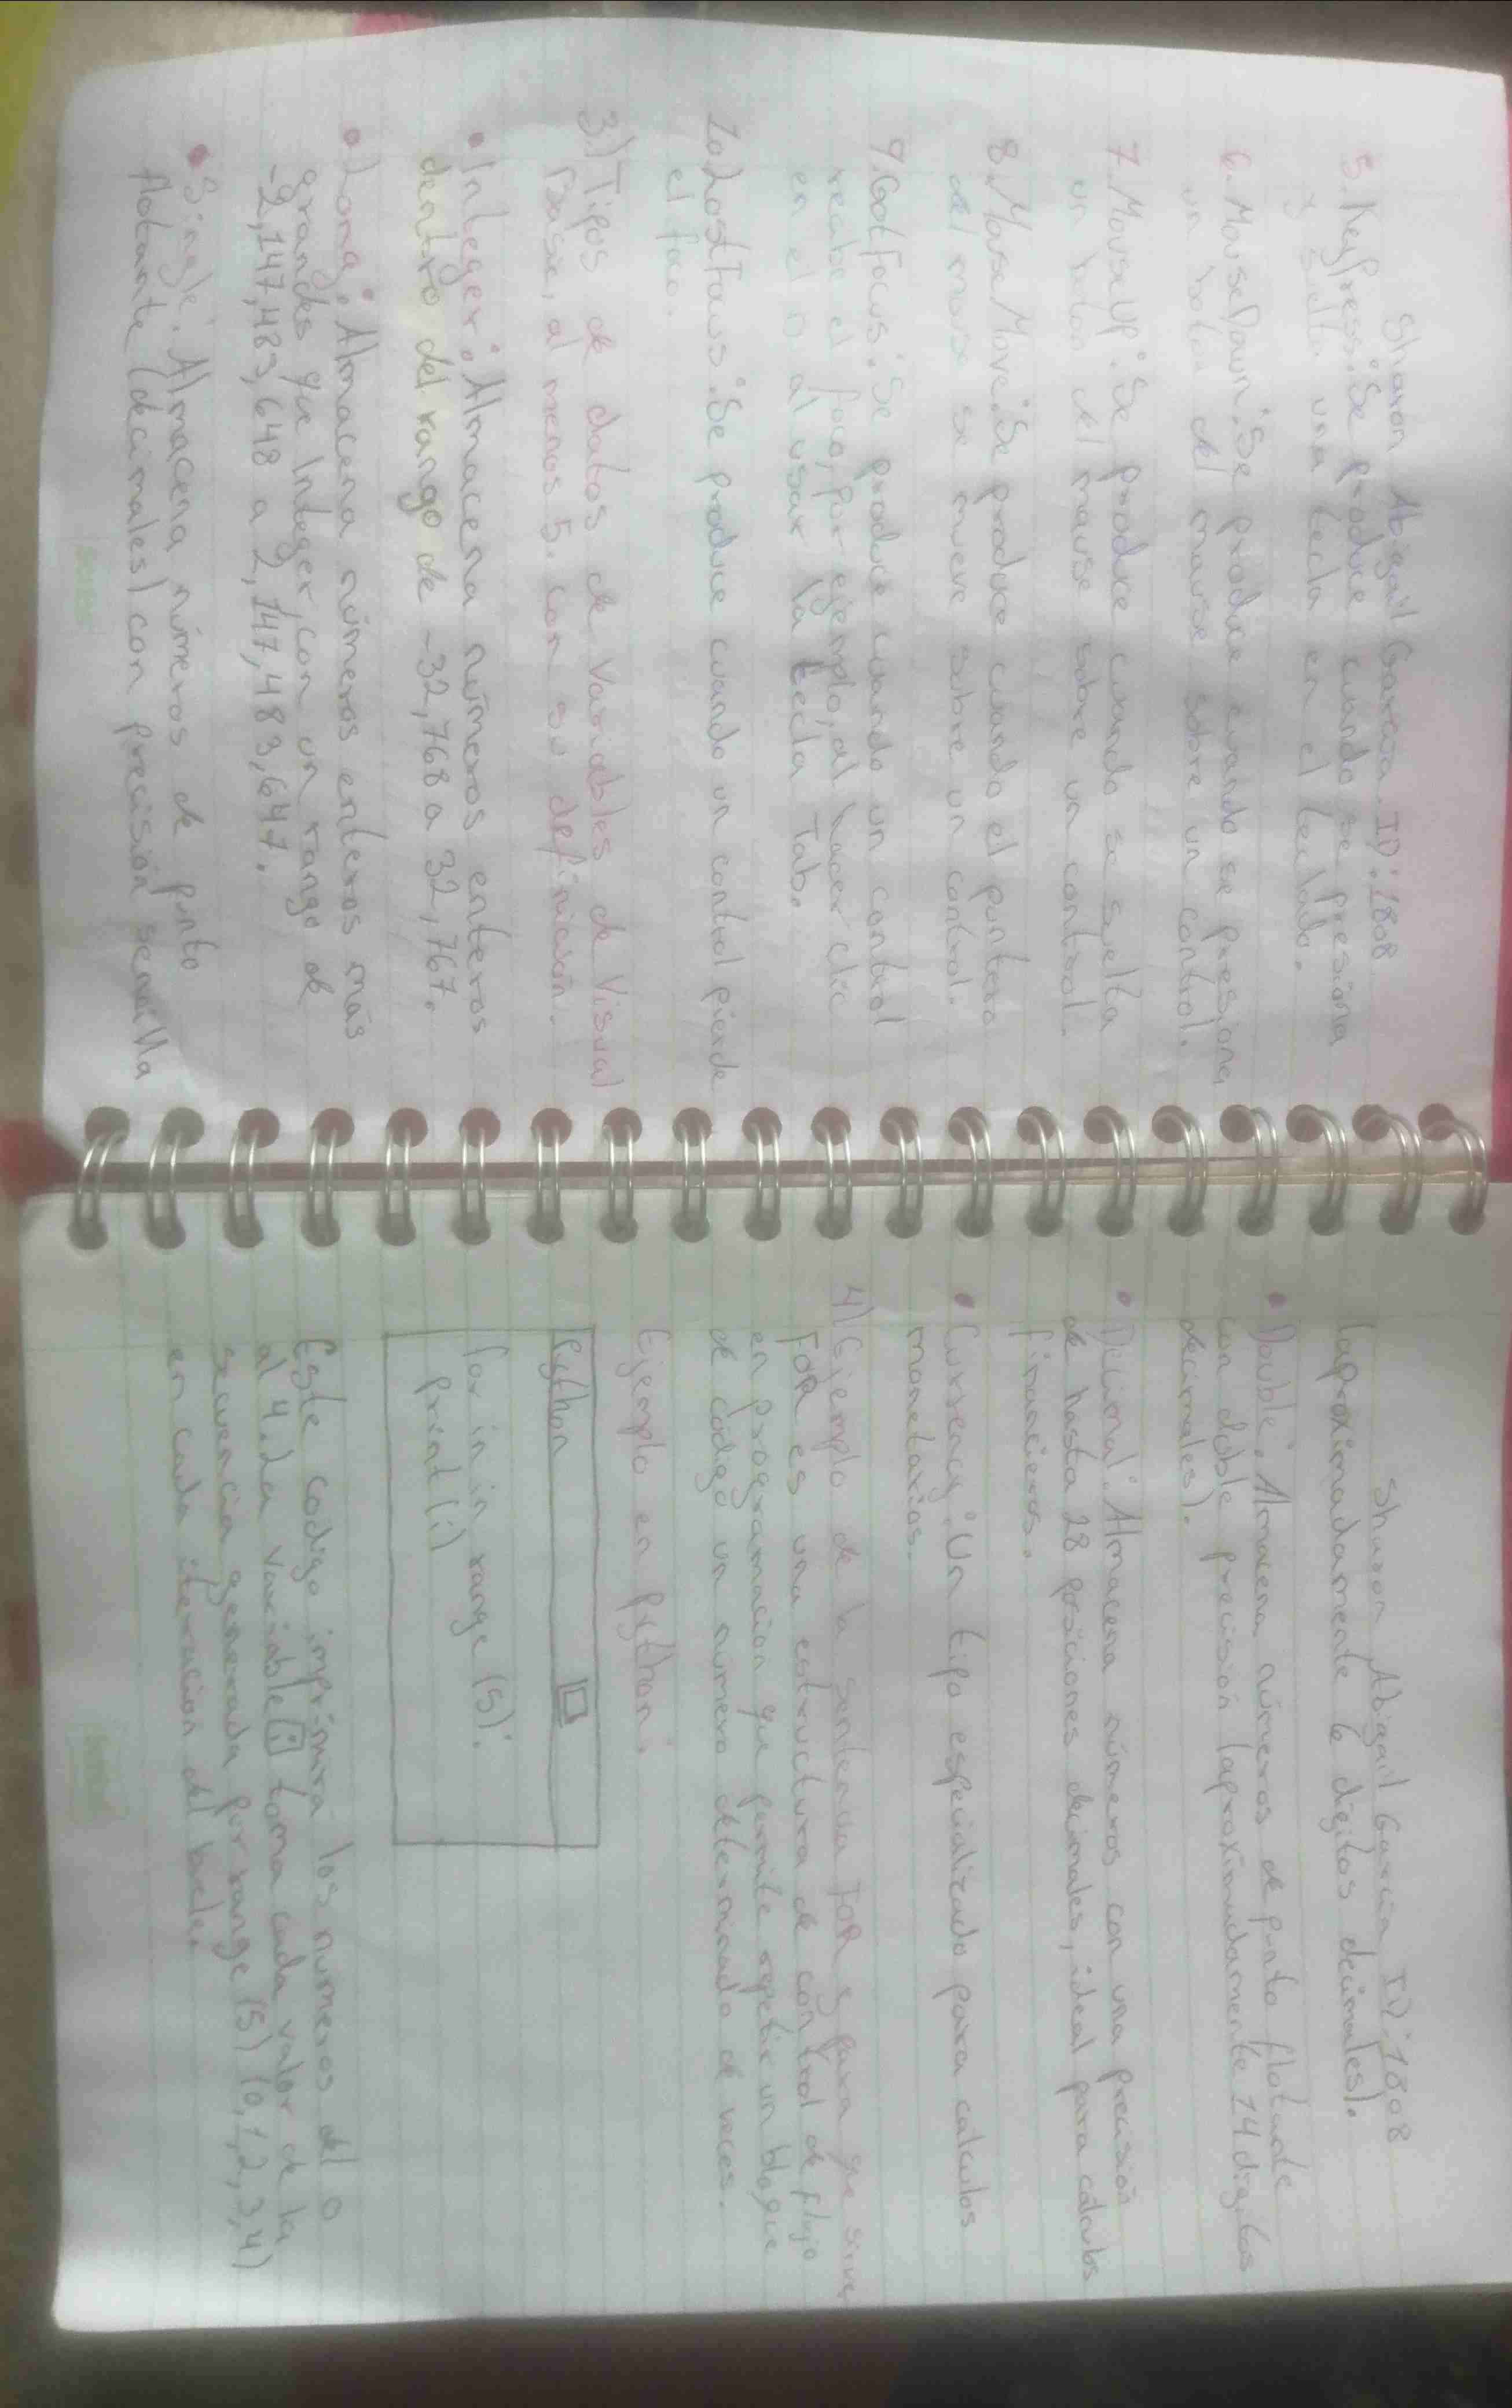 Sharon Abigail García. ID: 1808
5. KeyPress: Se produce cuando se presiona
y suelta una tecla en el teclado.
6. MouseDown: Se produce cuando se presiona
un botón del mause sobre un control.
7. MouseUP: Se produce cuando se suelta
un botón del mause sobre un control.
8. MouseMove: Se produce cuando el puntero
del mouse se mueve sobre un control.
9. GotFocus: Se produce cuando un control
recibe el foco, por ejemplo, al hacer clic
en el o al usar la tecla Tab.
10. LostFocus: Se produce cuando un control pierde
el foco.
3.) Tipos de datos de Variables de Visual
Basic, al menos 5. con su definición.
• Integer: Almacena números enteros
dentro del rango de -32,768 a 32,767.
• Long: Almacena números enteros más
grandes que Integer, con un rango de
-2,147,483,648 a 2,147,483,647.
• Single: Almacena números de punto
flotante (decimales) con precisión sencilla
Sharon Abigail García ID: 1808
(aproximadamente 6 dígitos decimales).
• Double: Almacena números de punto flotante
con doble precisión (aproximadamente 14 digitos
decimales).
• Decimal: Almacena números con una precisión
de hasta 28 posiciones decimales, ideal para cálculos
financieros.
• Currency: Un tipo especializado para calculos
monetarios.
4) Ejemplo de la sentencia FOR y para que sirve
FOR es una estructura de control de flujo
en programacion que permite repetir un bloque
de código un número determinado de veces.
Ejemplo en python:
Python
for in in range (5):
print (i)
Este codigo imprimirá los numeros del 0
al 4. La variable i toma cada valor de la
secuencia generada por range (5) (0, 1, 2, 3, 4)
en cada iteracion del bucle.